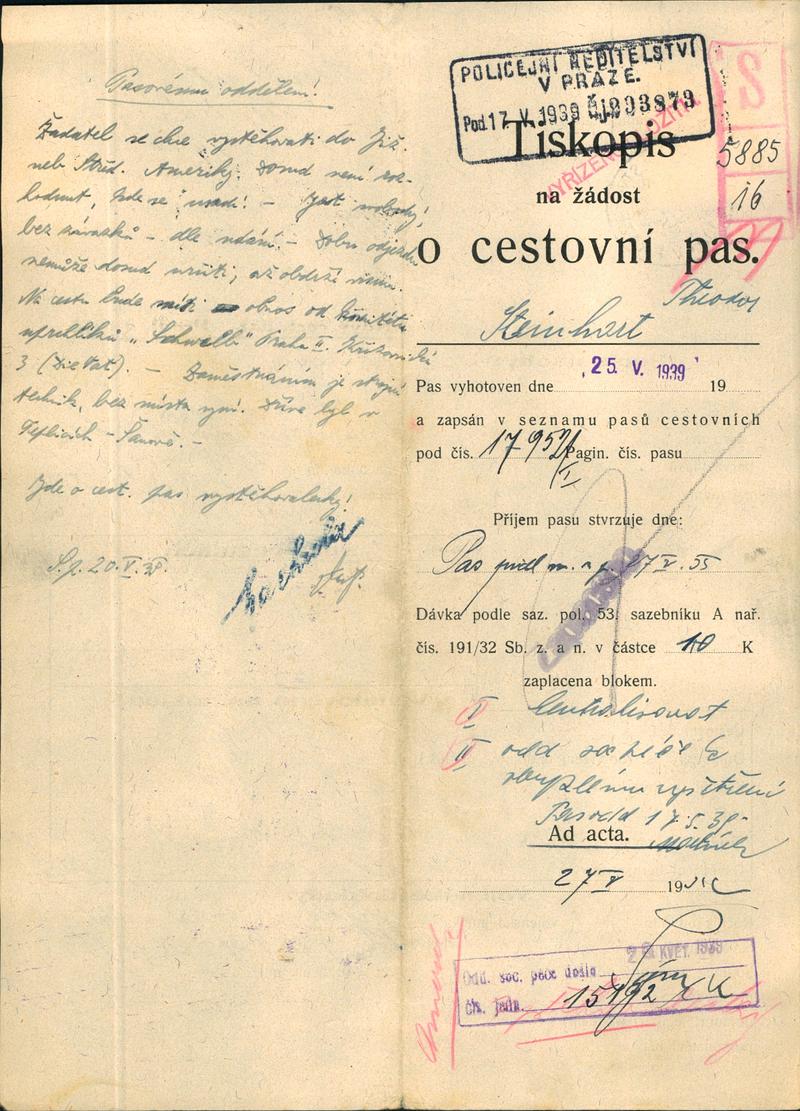 Pasovému oddělení!
Žadatel se chce vystěhovati do Již.
neb Střed. Ameriky. Dosud není roz-
hodnut, kde se usadí! – Jest svobodný,
bez závazků – dle udání. – Dobu odjezdu
nemůže dosud určiti, až obdrží visum.
Na cestu bude míti obnos od Komitétu
uprchlíků „Schwelb" Praha II.
3 – Zaměstnáním je strojní
technik, bez místa nyní. Dříve byl v
Teplicích – Šanově. –
Jde o cest. pas vystěhovalecký!
20.V.39.
POLICEJNÍ ŘEDITELSTVÍ
V PRAZE.
Pod 17 V. 1939 Čj 203873
S
5885
16
Tiskopis
na žádost
o cestovní pas.
Theodor
Steinhart
Pas vyhotoven dne 25. V. 1939 19
a zapsán v seznamu pasů cestovních
pod čís. 17952/I Pagin. čís. pasu
Příjem pasu stvrzuje dne:
Pas
Dávka podle saz. pol. 53. sazebníku A nař.
čís. 191/32 Sb. z. a n. v částce 10 K
zaplacena blokem.
I Centralisovat
II odd soc péče k
vyšetření
17.5.39
Ad acta.
27 V 19
KVĚT. 1939
Odd. soc. péče došlo
čís. jedn. 15192